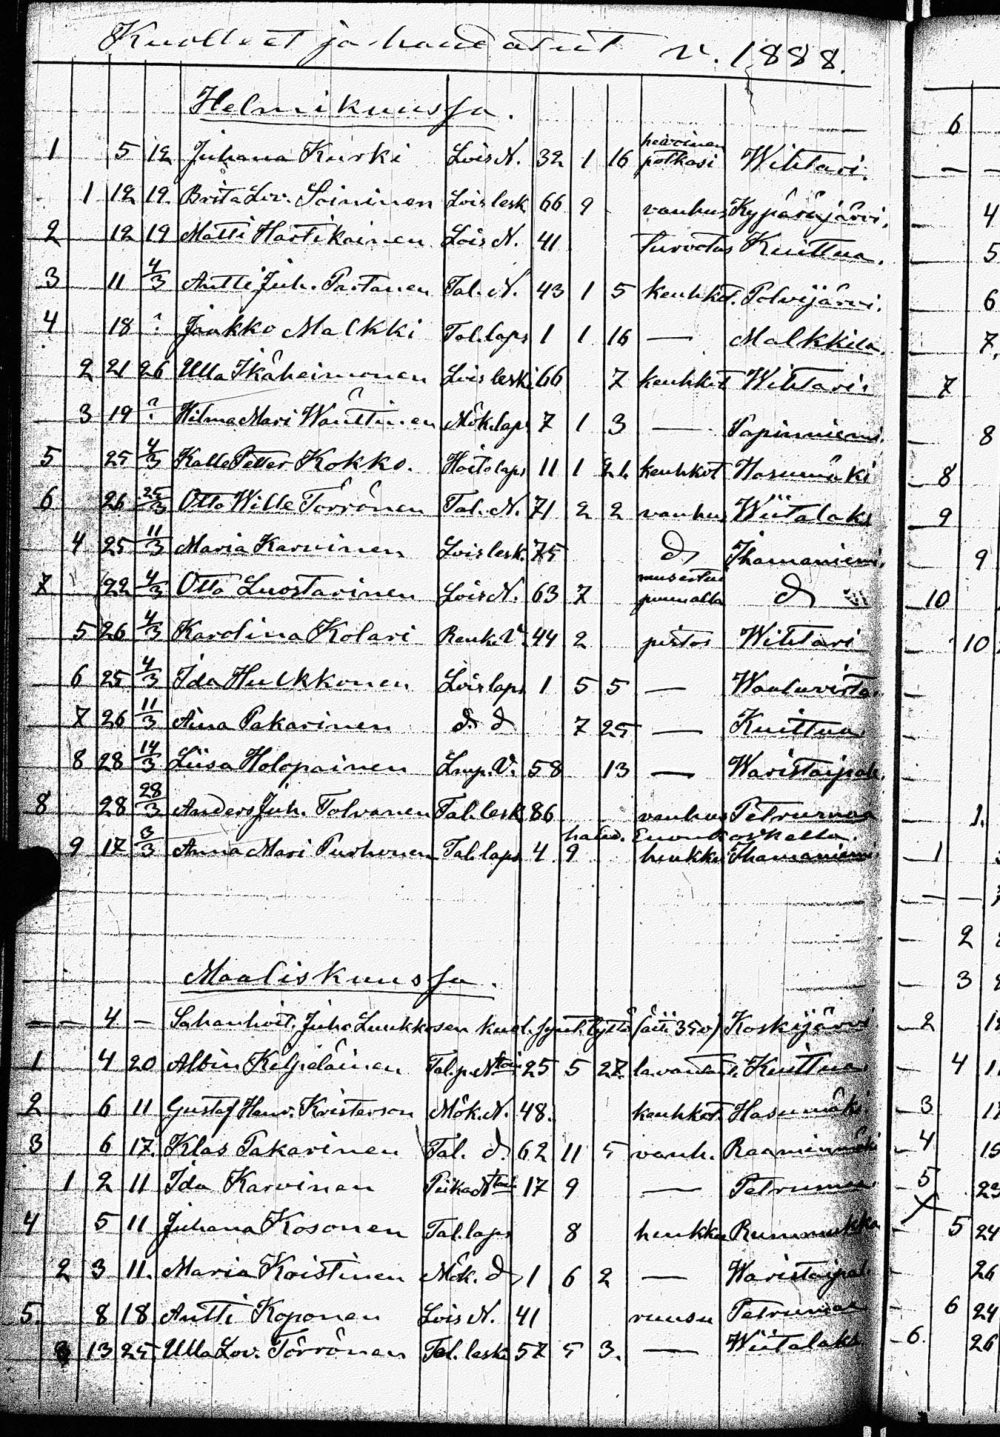 Kuolleet ja haudatut v. 1888.
Helmikuussa.
1 5 12 Juhana Kurki Lois N. 32 1 16 hevoinen potkasi Wihtari.
1 12 19. Brita Lov. Soininen Lois lesk 66 9 vanhus Kypäräjärvi.
2 12 19 Matti Hartikainen Lois N. 41 turvotus Kuittua.
3 11 4/3 Antti Juh. Partanen Tal. N. 43 1 5 keuhkot. Polvijärvi.
4 18 ? Jaakko Malkki Tal. laps 1 1 16 — Malkkila.
2 21 26 Ulla Ikäheimonen Lois leski 66 7 keuhkot Wihtari
3 19 ? Hilma Mari Wänttinen Mök. laps 7 1 3 — Papinniemi.
5 25 4/3 Kalle Petter Kokko. Hoitolaps 11 1 21 keuhkot Hasumäki
6 26 25/3 Otto Wille Törrönen Tal. N. 71 2 2 vanhus Wiitalaks
4 25 11/3 Maria Karvinen Lois lesk. 75 d Ihamaniemi.
7 22 4/3 Otto Luostarinen Lois N. 63 7 musertui puun alla d
5 26 4/3 Karolina Kolari Renk. V. 44 2 pistos Wihtari
6 25 4/3 Ida Hulkkonen Lois laps 1 5 5 —
7 26 11/3 Aina Pakarinen d d 7 25 — Kuittua
8 28 14/3 Liisa Holopainen V. 58 13 — Waristaipal.
8 28 28/3 Anders Juh. Tolvanen Tal. lesk 86 vanhus Petrumaa
haud. Enonkoskella.
9 17 3/3 Anna Mari Purhonen Tal. laps 4 9 hinkku Ihamaniemi
Maaliskuussa.
— 4 — Juho Luukkosen kuol. synt. tyttö (äiti 35 v) Koskijärvi
1 4 20 Albin Keljeläinen Tal. p. Ntoin 25 5 27 lavantau. Kuittua
2 6 11 Gustaf Henr. Kristerson Mök. N. 48. keuhkot. Hasumäki
3 6 17. Klas Pakarinen Tal. d 62 11 5 vanh. Raaminmäki
1 2 11 Ida Karvinen Piika Ntoin 17 9 — Petrumaa
4 5 11 Juhana Kosonen Tal. laps 8 hinkku Rummukka
2 3 11. Maria Koistinen Mök. d 1 6 2 — Waristaipal.
5. 8 18 Antti Koponen Lois N. 41 ruusu Petrumaa
3 13 25 Ulla Lov. Törrönen Tal. leski 57 5 3. — Wiitalaks
6
4
5
6
7.
7
8
8
9
9
10
10
1.
1
2
3
2
4
3
4
5
5 24
26
6 24
6. 26